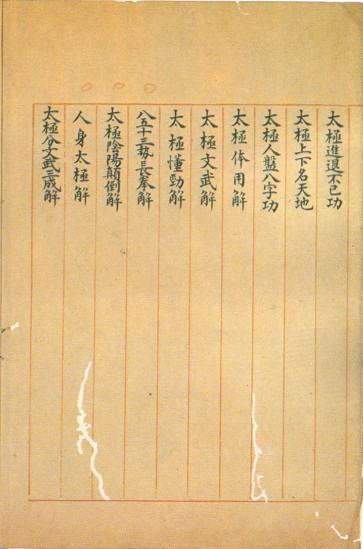 太極進退不已功
太極上下名天地
太極人盤八字功
太極体用解
太極文武解
太極懂勁解
八五十三勢長拳解
太極陰陽顛倒解
人身太極解
太極分文武三成解